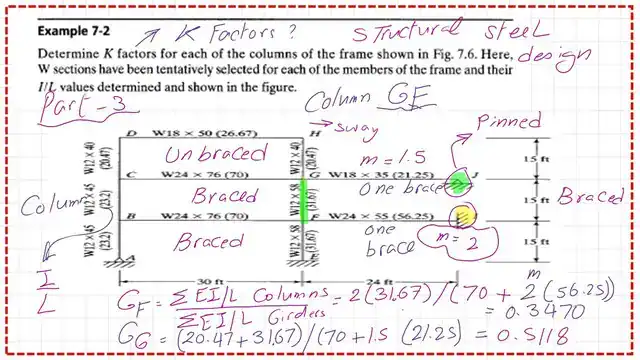 Example 7-2
K Factors ?
Structural Steel
design
Determine K factors for each of the columns of the frame shown in Fig. 7.6. Here,
W sections have been tentatively selected for each of the members of the frame and their
I/L values determined and shown in the figure.
Part-3
Column GF
→ sway
Pinned
D W18 × 50 (26.67) H
W12 × 40
(20.47)
Unbraced
W12 × 40
(20.47)
m = 1.5
15 ft
C W24 × 76 (70) G W18 × 35 (21.25) J
Column
W12 × 45
(23.2)
Braced
W12 × 58
(31.67)
one brace
15 ft
Braced
B W24 × 76 (70) F W24 × 55 (56.25)
W12 × 45
(23.2)
Braced
W12 × 58
(31.67)
one
brace
m = 2
15 ft
A
I
L
30 ft
24 ft
m
G_F = Σ EI/L Columns / Σ EI/L Girders = 2(31.67)/(70 + 2(56.25))
= 0.3470
G_G = (20.47+31.67)/(70+1.5 (21.25) = 0.5118